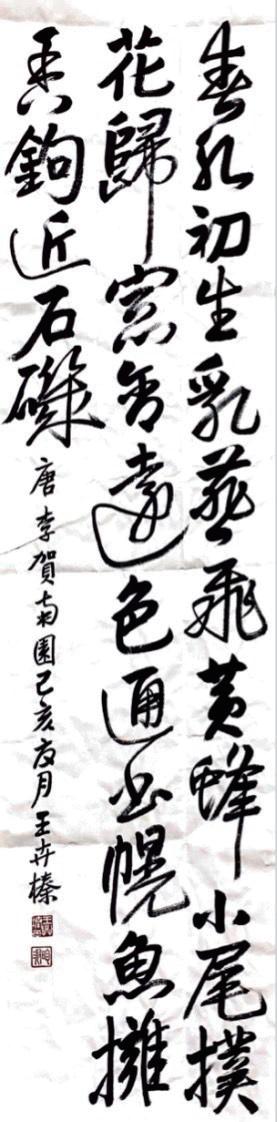 春水初生乳燕飛黄蜂小尾撲
花歸窓含遠色通書幌魚擁
香鉤近石磯 唐李賀南園己亥夏月王卉榛